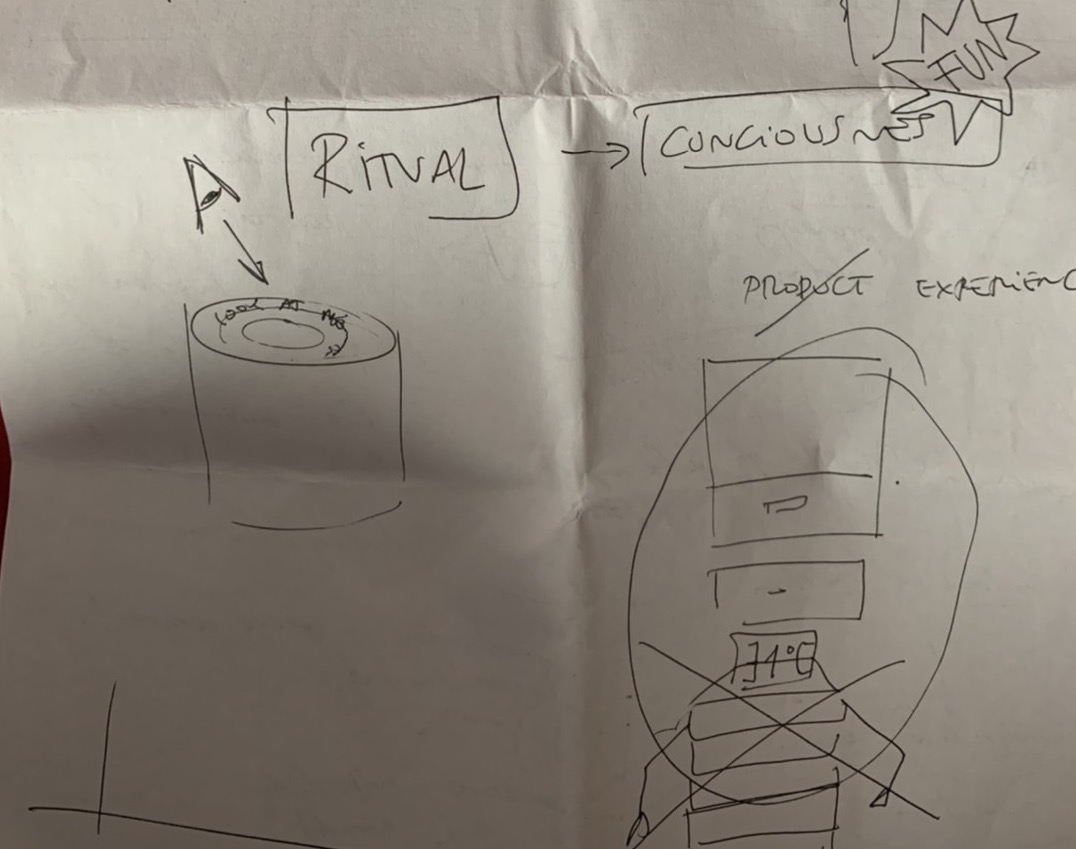 FUN
RITUAL → CONCIOUSNES
LOOK AT ME
PRODUCT EXPERIENC
31°C